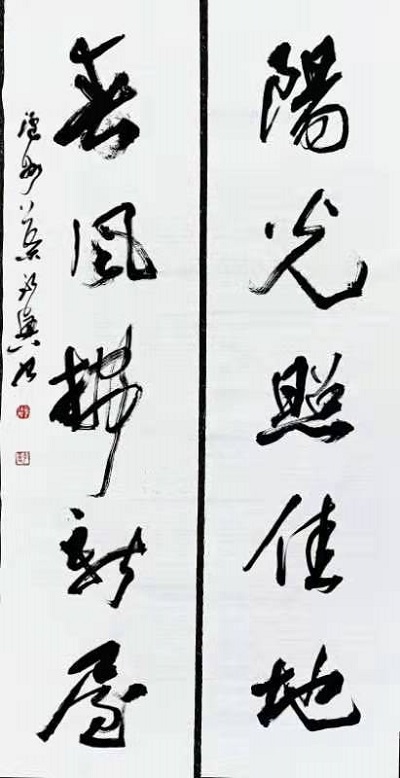 陽光照佳地
春風拂新屋